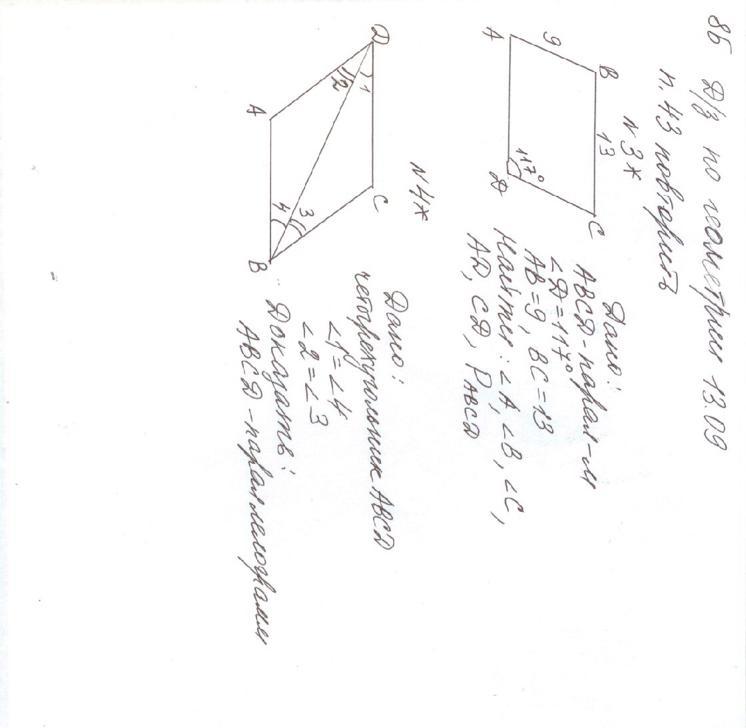 8Б Д/з по геометрии 13.09
п. 43 повторить
N 3*
A
9
B
13
C
117°
D
Дано:
ABCD - парал-м
∠D = 117°
AB = 9, BC = 13
Найти: ∠A, ∠B, ∠C,
AD, CD, P ABCD
N 4*
D
1
2
C
A
3
4
B
Дано:
четырехугольник ABCD
∠1 = ∠4
∠2 = ∠3
Доказать:
ABCD - параллелограмм